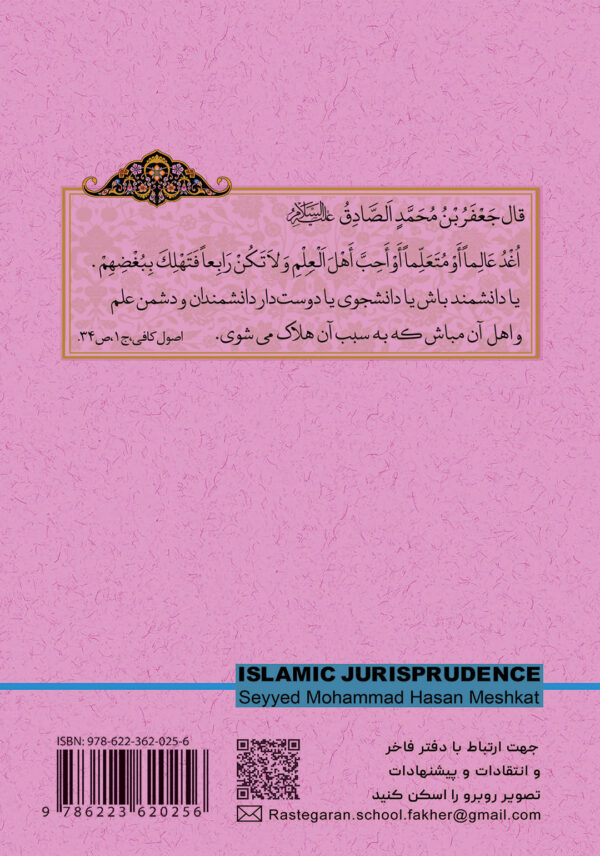 قال جَعْفَرُ بْنُ مُحَمَّدٍ اَلصَّادِقُ عَلَیهِ‌السَّلامْ
اُغْدُ عَالِماً أَوْ مُتَعَلِّماً أَوْ أَحِبَّ أَهْلَ اَلْعِلْمِ وَ لاَ تَكُنْ رَابِعاً فَتَهْلِكَ بِبُغْضِهِمْ.
یا دانشمند باش یا دانشجوی یا دوست‌دار دانشمندان و دشمن علم
و اهل آن مباش که به سبب آن هلاک می شوی. اصول کافی، ج۱، ص۳۴.
ISLAMIC JURISPRUDENCE
Seyyed Mohammad Hasan Meshkat
ISBN: 978-622-362-025-6
9 786223 620256
جهت ارتباط با دفتر فاخر
و انتقادات و پیشنهادات
تصویر روبرو را اسکن کنید
Rastegaran.school.fakher@gmail.com